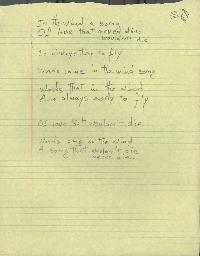 In the wind a song
Of love that never die
wouldn't die
is always there to fly
in the wind song
Words that in the wind
Are always ready to fly
Of love that wouldn't die
in the wind
A song that wouldn't die
never die